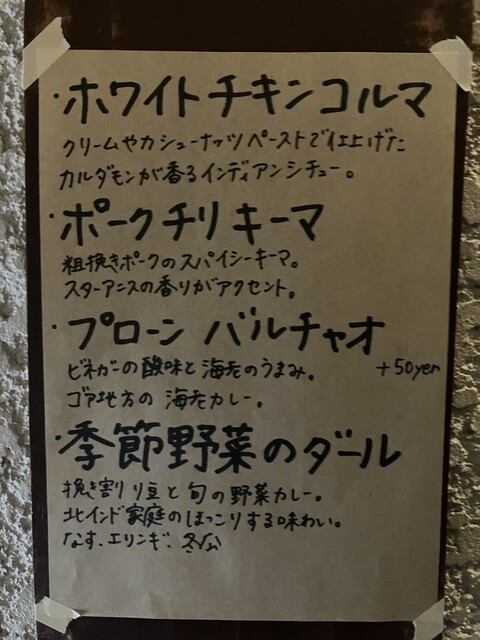 ・ホワイトチキンコルマ
クリームやカシューナッツペーストで仕上げた
カルダモンが香るインディアンシチュー。
・ポークチリキーマ
粗挽きポークのスパイシーキーマ。
スターアニスの香りがアクセント。
・プローン バルチャオ
ビネガーの酸味と海老のうまみ。 +50yen
ゴア地方の海老カレー。
・季節野菜のダール
挽き割り豆と旬の野菜カレー。
北インド家庭のほっこりする味わい。
なす、エリンギ、冬瓜